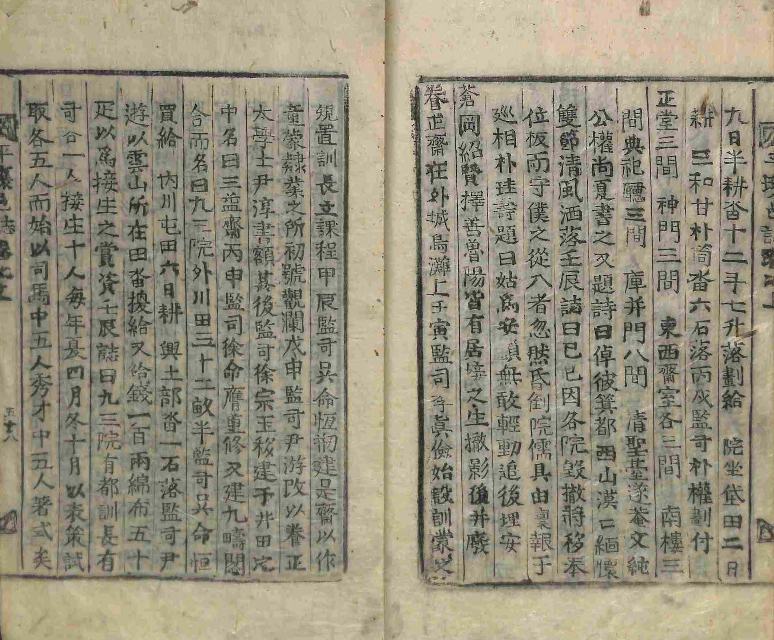 九日半耕畓十二斗七升落劃給 院坐岱田二日
耕 三和甘朴筒畓六石落丙戌監司朴權劃付
正堂三間 神門三間 東西齋室各三間 南樓三
間典祀廳三間 庫并門八間 清聖臺遂菴文純
公權尚夏書之又題詩曰倬彼箕都西山漠亡緬懷
雙節清風洒落壬辰誌曰己巳因各院毀撤將移奉
位板而守僕之從入者忽然昏倒院儒具由稟報于
巡相朴珪壽題曰姑爲安鎮無敢輕動追後埋安
蒼岡紹賢擇善曾陽皆有居接之生撤影後并廢
養正齋在外城烏灘上壬寅監司李真儉始設訓蒙之
規置訓長立課程甲辰監司吳命恒剏建是齋以作
童蒙隷業之所初號觀瀾戊申監司尹游改以養正
太學士尹淳書額其後監司徐宗玉移建于井田它
中名曰三益齋丙申監司徐命膺重修又建九疇閣
合而名曰九三院外川田三十二畝半監司吳命恒
買給 內川屯田六日耕 興土部畓一石落監司尹
遊以雲山所在田畓換給又給錢一百兩綿布五十
疋以爲接生之賞資壬辰誌曰九三院有都訓長有
司各一人接生十人每年夏四月冬十月以表策試
取各五人而始以司馬中五人秀才中五人著式矣
五十八